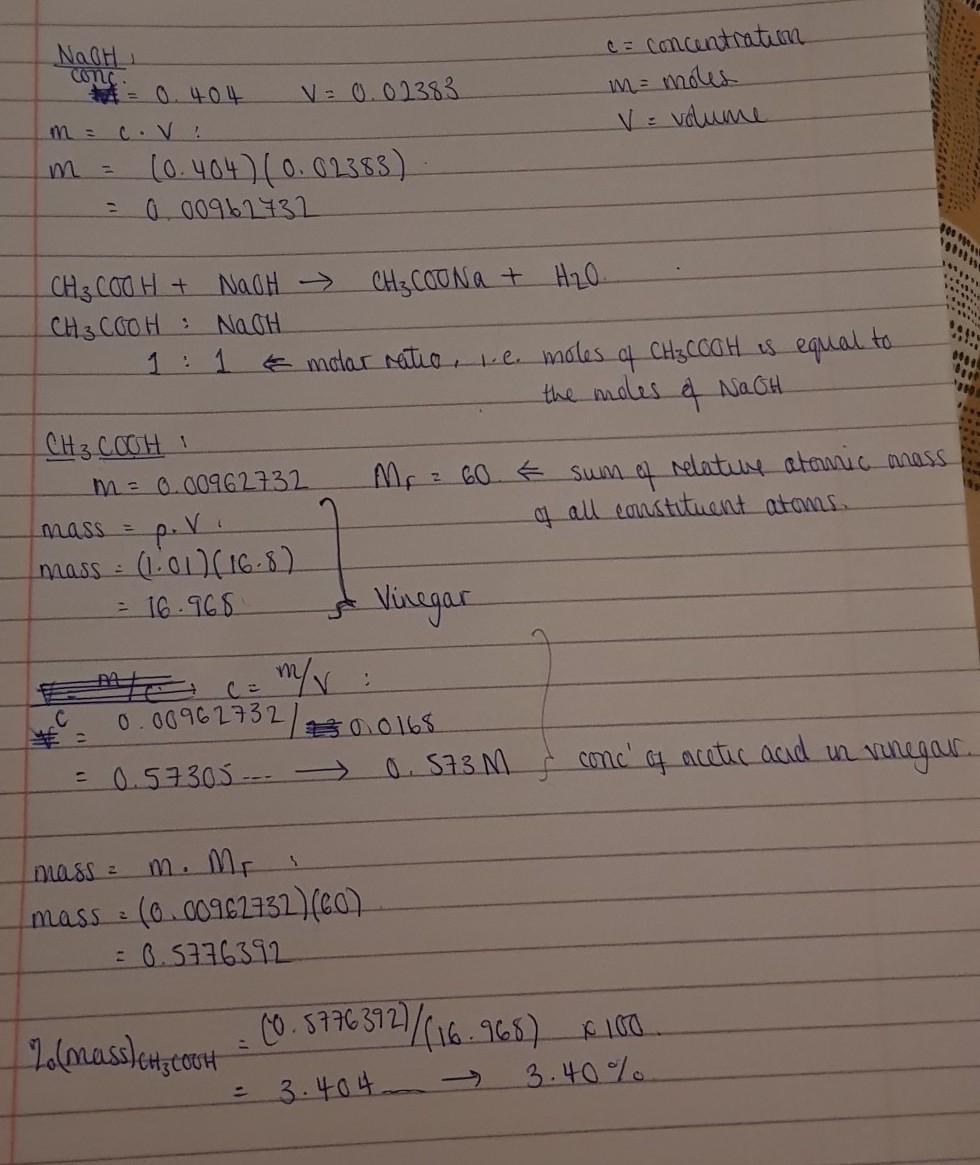 NaOH :
c = concentration
conc. = 0.404 V = 0.02383
m = moles
m = c . V :
V = volume
m = (0.404)(0.02383)
= 0.00962732
CH3COOH + NaOH → CH3COONa + H2O
CH3COOH : NaOH
1 : 1 ← molar ratio, i.e. moles of CH3COOH is equal to
the moles of NaOH
CH3COOH :
m = 0.00962732 Mr = 60 ← sum of relative atomic mass
of all constituent atoms.
mass = ρ.V :
mass = (1.01)(16.8)
= 16.968 Vinegar
c = m/V :
c = 0.00962732/0.0168
= 0.57305... → 0.573M conc' of acetic acid in vinegar.
mass = m . Mr :
mass = (0.00962732)(60)
= 0.5776392
%(mass)CH3COOH = (0.5776392)/(16.968) × 100
= 3.404... → 3.40%